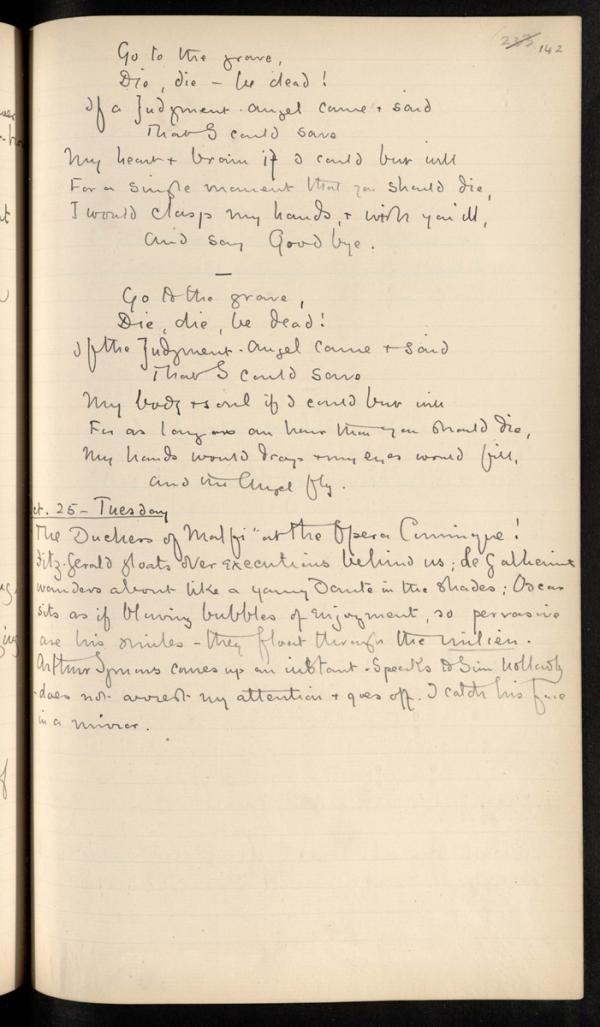 233 142
Go to the grave,
Die, die – be dead!
If a Judgment-Angel came + said
That I could save
My heart + brain if I could but will
For a single moment that you should die,
I would clasp my hands, + wish you ill,
And say Good bye.
—
Go to the grave,
Die, die, be dead!
If the Judgment-Angel came + said
That I could save
My body + soul if I could but will
For as long as an hour that you should die,
My hands would drop + my eyes would fill,
And the Angel fly.
Oct. 25 – Tuesday
The Duchess of Malfi" at the Opera Comique!
Fitz-Gerald gloats over executions behind us; de Gatherine
wanders about like a young Dante in the Shades; Oscar
sits as if blowing bubbles of enjoyment, so pervasive
are his smiles – they float through the milieu.
Arthur Symons comes up an instant – Speaks to Sim
does not arrest my attention + goes off. I catch his face
in a mirror.